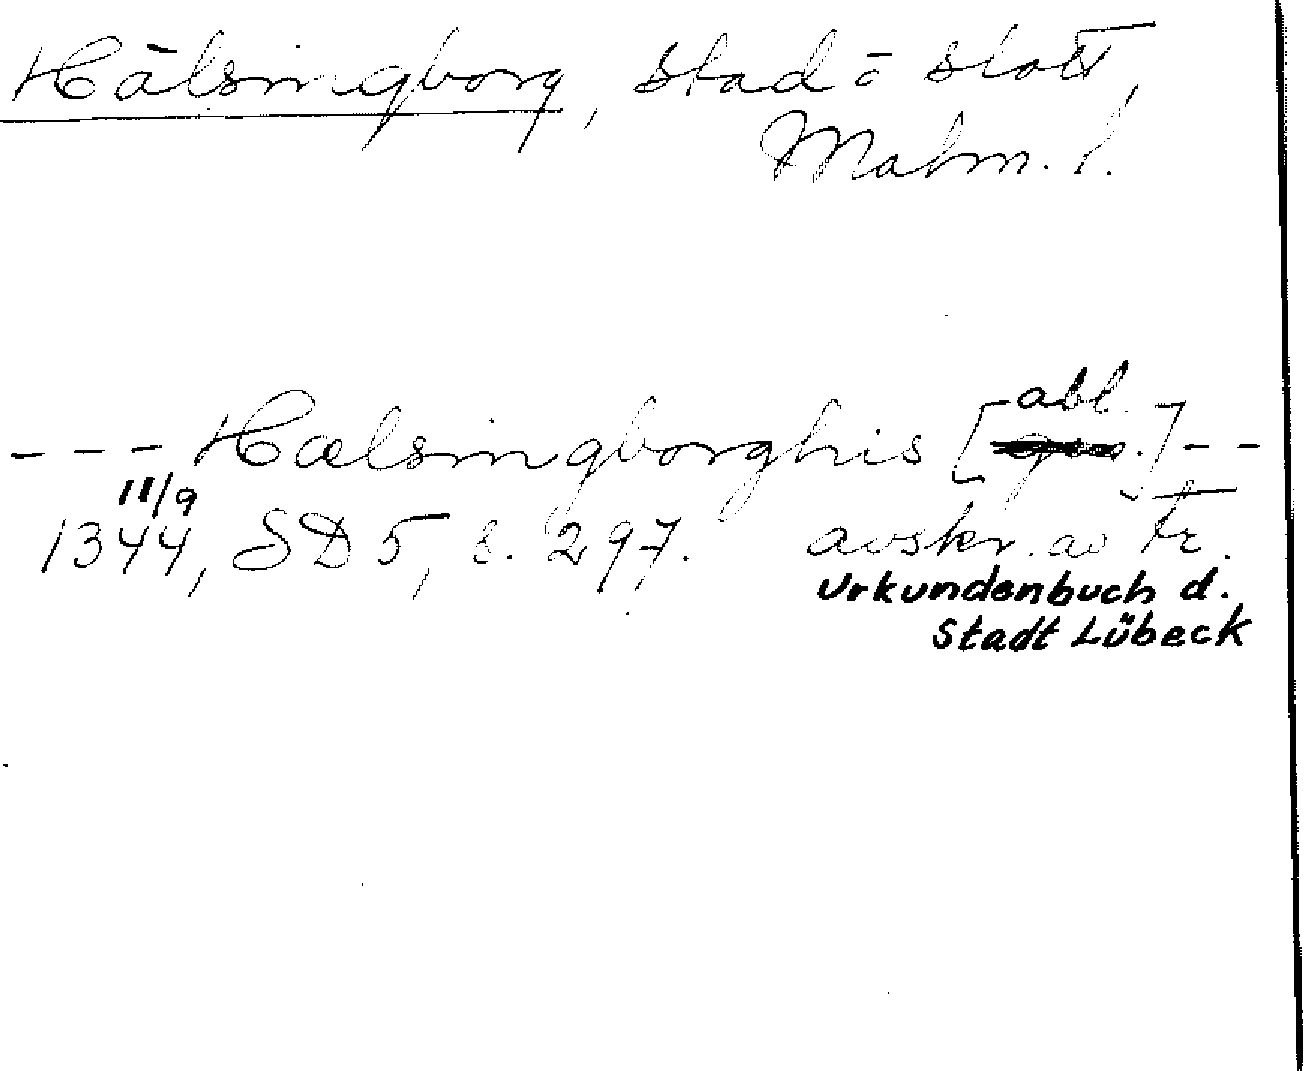 Hälsingborg, stad o slott,
Malm. l.
--- Hælsingborghis [abl.] --
11/9
1344, SD 5, s. 297. avskr. av tr.
Urkundenbuch d.
Stadt Lübeck